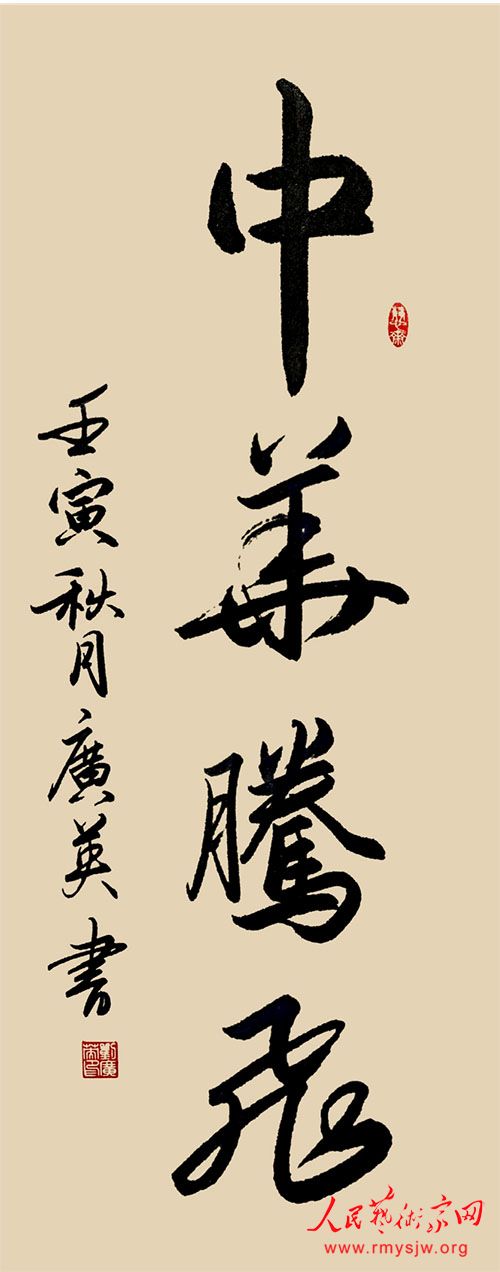 中華騰飛
壬寅秋月廣英書
劉廣英印
人民藝術家网
www.rmysjw.org